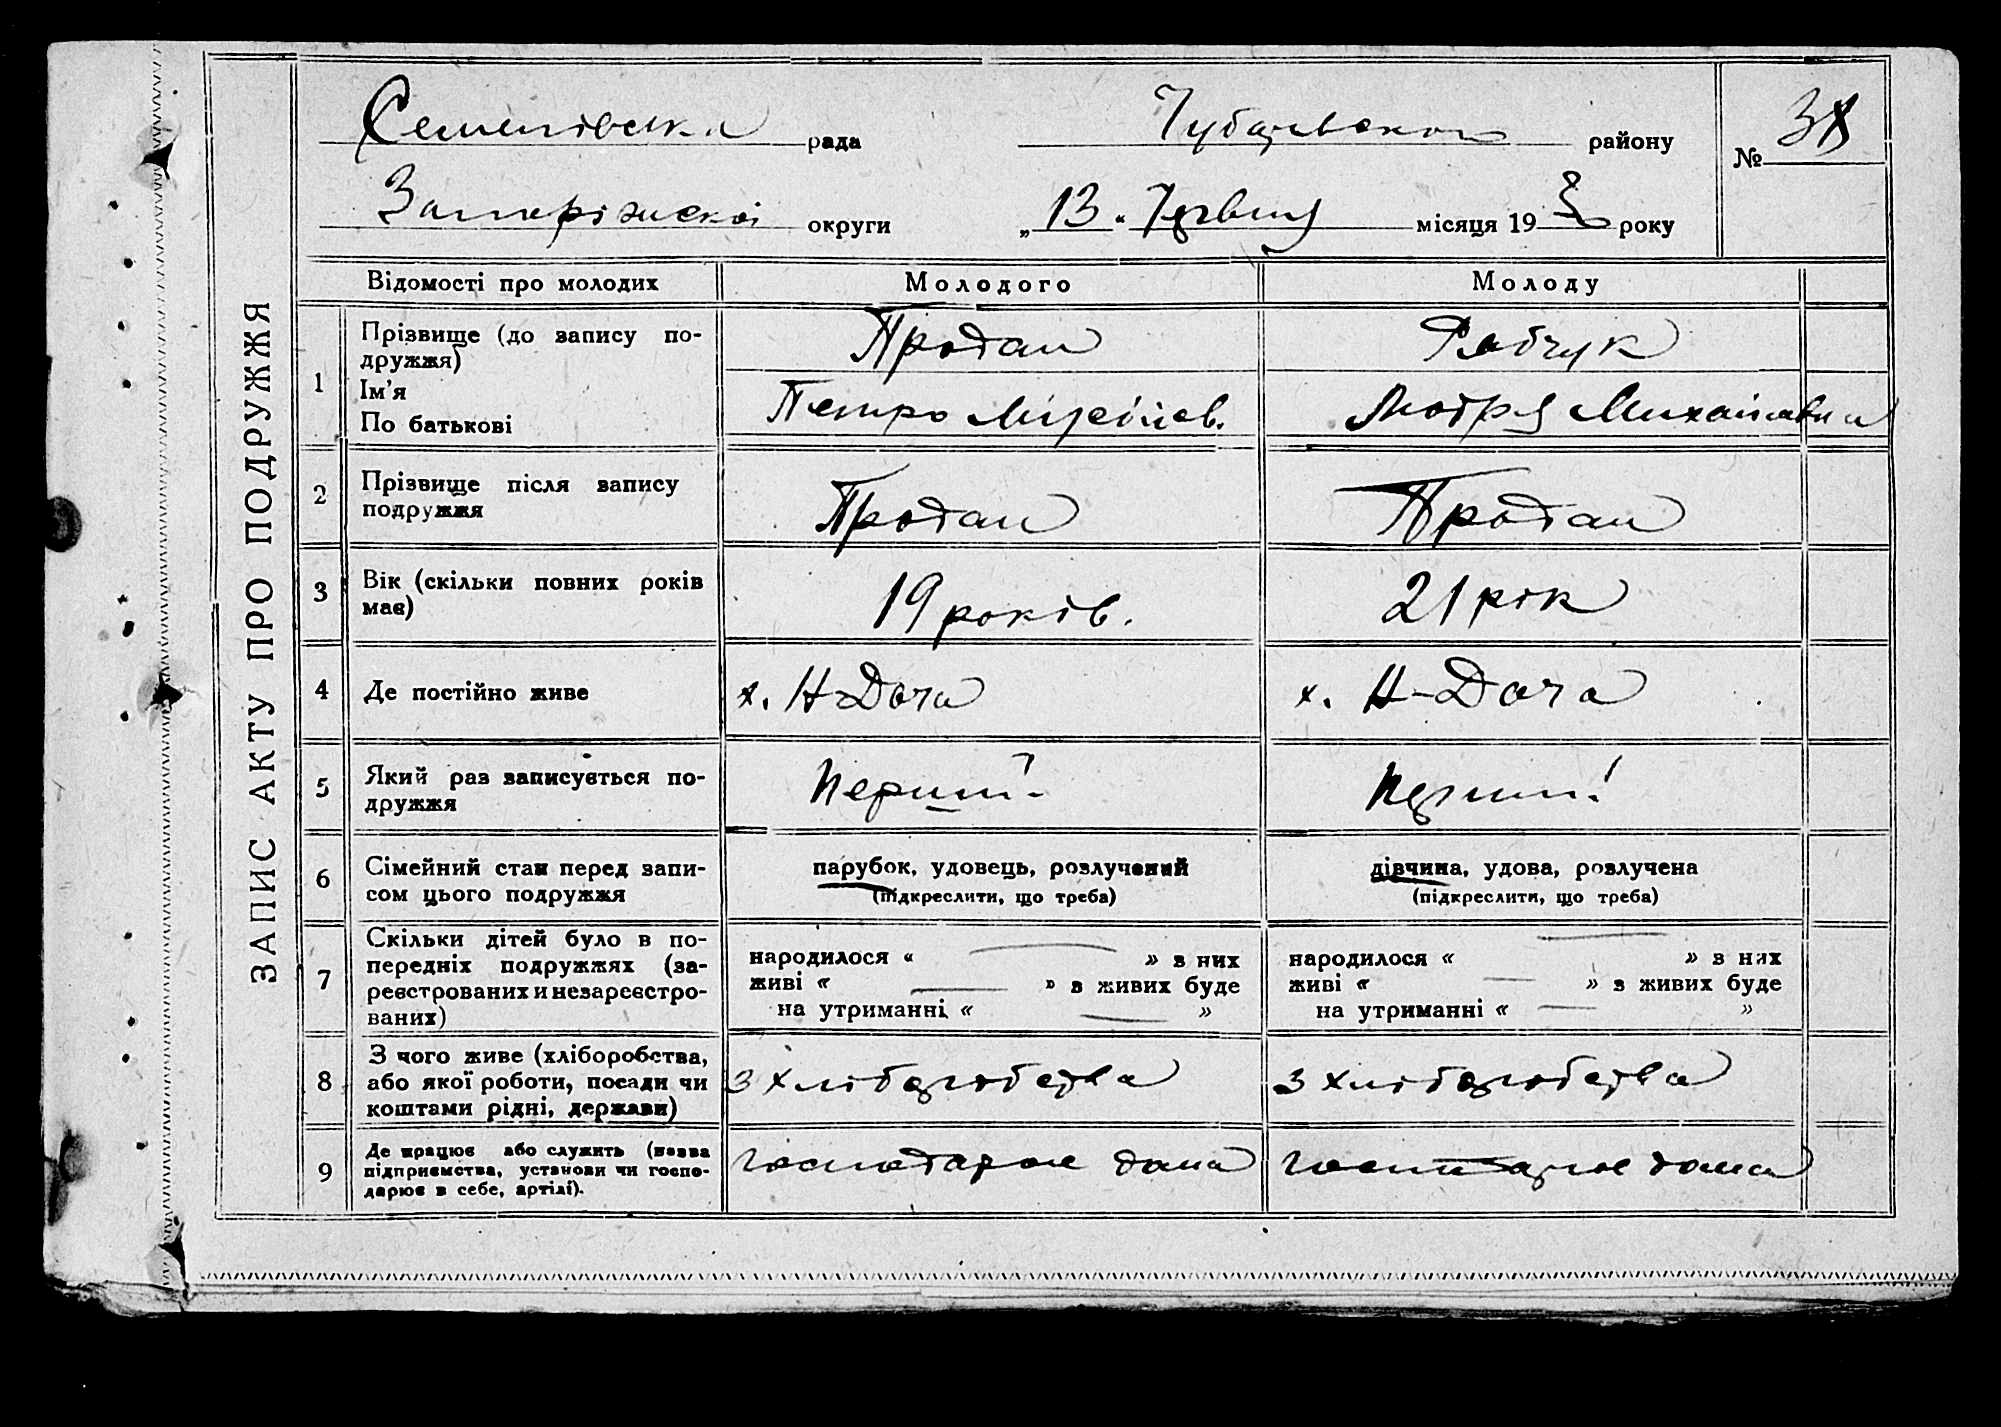 ЗАПИС АКТУ ПРО ПОДРУЖЖЯ
Семенівська рада Чубарівського району № 38
Запоріжської округи „13" Червня місяця 19 року
Відомості про молодих Молодого Молоду
1 Прізвище (до запису по-
дружжя) Продан Рябчук
Ім'я
По батькові Петро Мотря Михайлівна
2 Прізвище після запису
подружжя Продан Продан
3 Вік (скільки повних років
має) 19 років. 21 рік
4 Де постійно живе х. Н-Дача х. Н-Дача
5 Який раз записується по-
дружжя Перший Перший
6 Сімейний стан перед запи-
сом цього подружжя
парубок, удовець, розлучений дівчина, удова, розлучена
(підкреслити, що треба) (підкреслити, що треба)
7 Скільки дітей було в по-
передніх подружжях (за-
реєстрованих и незареєстро-
ваних)
народилося « — » в них народилося « — » в них
живі « — » в живих буде живі « — » в живих буде
на утриманні « — » на утриманні « — »
8 З чого живе (хліборобства,
або якої роботи, посади чи
коштами рідні, держави)
З хліборобства З хліборобства
9 Де працює або служить (назва
підприємства, установи чи госпо-
дарює в себе, артілі).
господарює дома господарює дома